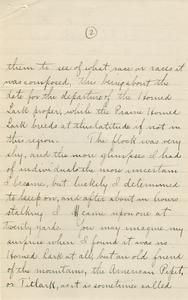 (2)
them to see of what race or races it
was composed, this being about the
date for the departure of the Horned
Lark proper, while the Prairie Horned
Lark breeds at this latitude if not in
this region. The flock was very
shy, and the more glimpses I had
of individuals the more uncertain
I became, but luckily I determined
to keep on, and after about an hours
stalking I came upon one at
twenty yards. You may imagine my
surprise when I found it was no
Horned Lark at all, but an old friend
of the mountains, the American Pipit,
or Titlark, as it is sometimes called